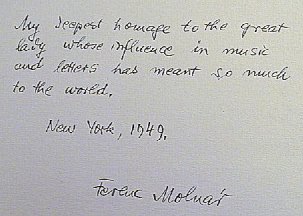 My deepest homage to the great
lady whose influence in music
and letters has meant so much
to the world.
New York, 1949.
Ferenc Molnár